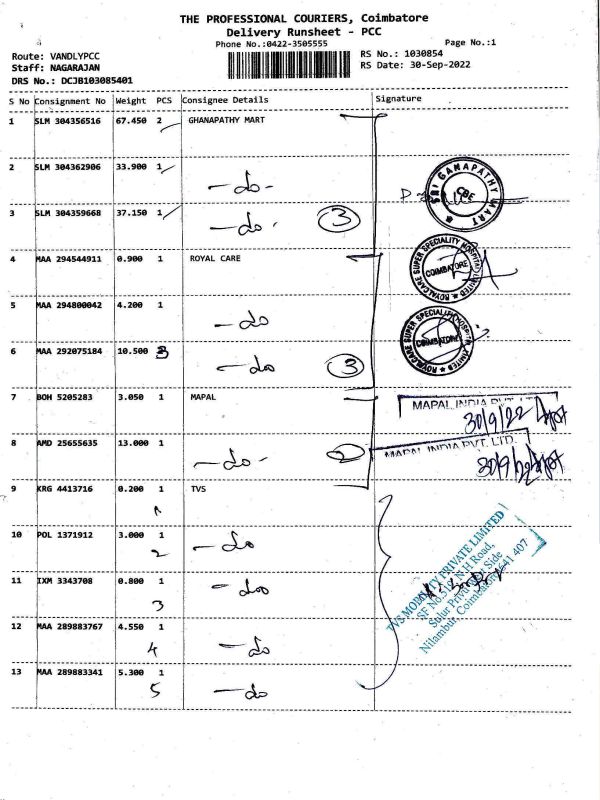 THE PROFESSIONAL COURIERS, Coimbatore
Delivery Runsheet - PCC
Phone No.:0422-3505555 Page No.:1
Route: VANDLYPCC RS No.: 1030854
Staff: NAGARAJAN RS Date: 30-Sep-2022
DRS No.: DCJB103085401
S No Consignment No Weight PCS Consignee Details Signature
1 SLM 304356516 67.450 2 GHANAPATHY MART
2 SLM 304362906 33.900 1
-do-
SRI GANAPATHY MART
CBE
3 SLM 304359668 37.150 1
-do- 3
4 MAA 294544911 0.900 1 ROYAL CARE
ROYALCARE SUPER SPECIALITY HOSPITAL LIMITED
COIMBATORE
5 MAA 294800042 4.200 1
-do
ROYALCARE SUPER SPECIALITY HOSPITAL LIMITED
COIMBATORE
6 MAA 292075184 10.500 3
-do 3
7 BOH 5205283 3.050 1 MAPAL
MAPAL INDIA PVT. LTD.
30/9/22
8 AMD 25655635 13.000 1
-do- 2
MAPAL INDIA PVT. LTD.
30/9/22
9 KRG 4413716 0.200 1 TVS
1
10 POL 1371912 3.000 1
2 -do
11 IXM 3343708 0.800 1
3 -do
TVS MOBILITY PRIVATE LIMITED
SF No.519, N H Road,
Sulur Privu West Side
Nilambur, Coimbatore-641 407
12 MAA 289883767 4.550 1
4 -do
13 MAA 289883341 5.300 1
5 -do